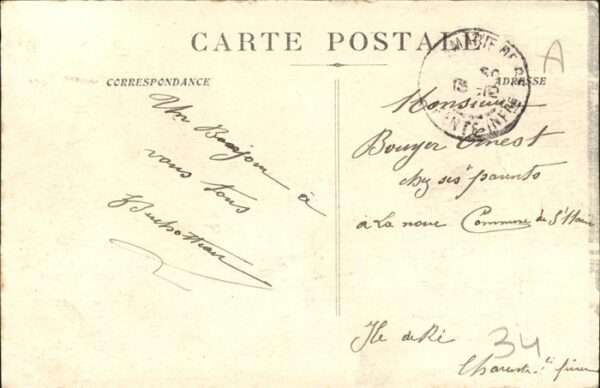 CARTE POSTALE
CORRESPONDANCE
Un Bonjour à
vous tous
ADRESSE
A
Monsieur
Bouyer Ernest
chez ses parents
à La noue Commune de Ste Marie
Ile de Ré
34
Charente-Inférieure